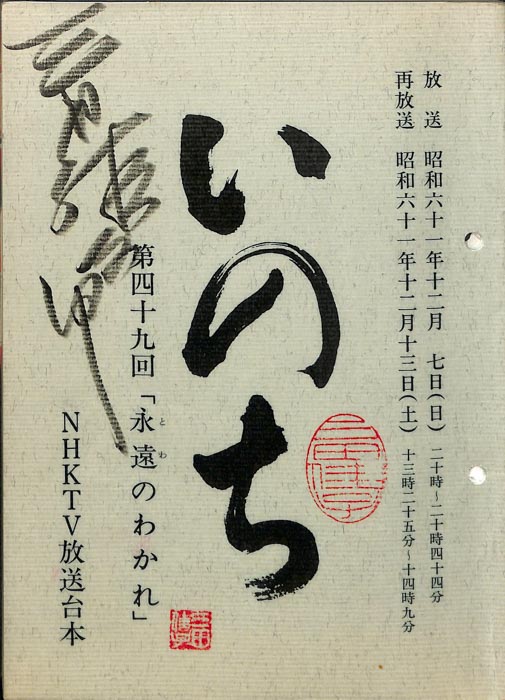 放送 昭和六十一年十二月 七日(日) 二十時～二十時四十四分
再放送 昭和六十一年十二月十三日(土) 十三時二十五分～十四時九分
いのち
第四十九回「永遠のわかれ」
とわ
NHKTV放送台本